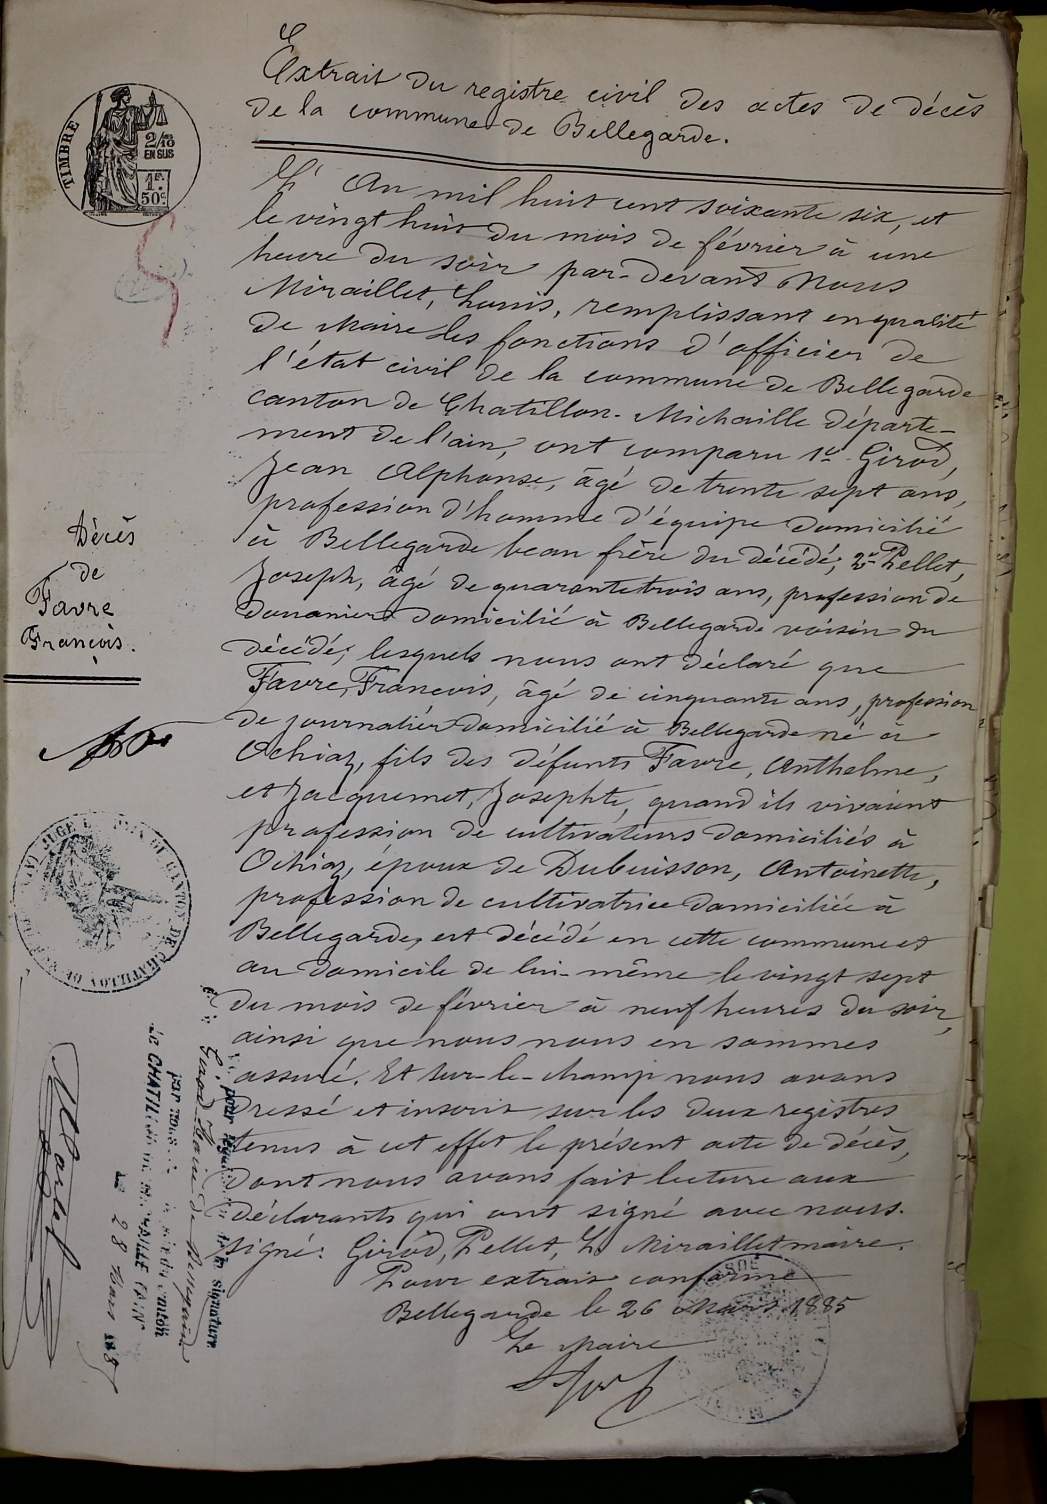 Extrait du registre civil des actes de décès
de la commune de Bellegarde.
TIMBRE
2/10
EN SUS
1F.
50c
L'An mil huit cent soixante six, et
le vingt huit du mois de février à une
heure du soir par-devant Nous
Miraillet, Louis, remplissant en qualité
de Maire les fonctions d'officier de
l'état civil de la commune de Bellegarde
canton de Chatillon-Michaille départe-
ment de l'ain, ont comparu 1er Girod,
Jean Alphonse, âgé de trente sept ans,
profession d'homme d'équipe domicilié
à Bellegarde beau frère du décédé; 2e Pellet,
Joseph, âgé de quarante trois ans, profession de
douanier domicilié à Bellegarde voisin du
décédé; lesquels nous ont déclaré que
Favre, Francois, âgé de cinquante ans, profession
de journalier domicilié à Bellegarde né à
Ochiaz, fils des défunts Favre, Anthelme,
et Jacquemet, Josephte, quand ils vivaient
profession de cultivateurs domiciliés à
Ochiaz, époux de Dubuisson, Antoinette,
profession de cultivatrice domiciliée à
Bellegarde, est décédé en cette commune et
au domicile de lui-même le vingt sept
du mois de février à neuf heures du soir,
ainsi que nous nous en sommes
assuré. Et sur-le-champ nous avons
dressé et inscrit sur les deux registres
tenus à cet effet le présent acte de décès,
dont nous avons fait lecture aux
déclarants qui ont signé avec nous.
Signé: Girod, Pellet, L. Miraillet maire.
Pour extrait conforme
Bellegarde le 26 Mars 1885
Le Maire
Décès
de
Favre
Francois.
JUGE DE PAIX DU CANTON DE CHATILLON
signature
Maire de
de CHATILLON
canton
28 Mars 188